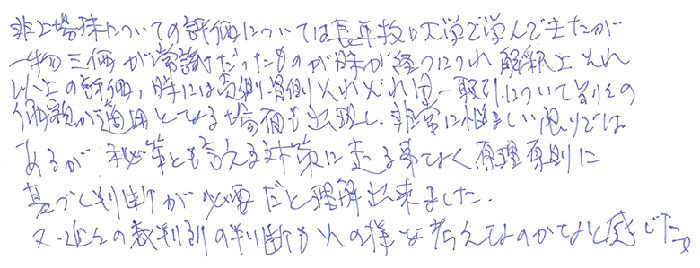 非上場株についての評価については長年税大学で学んで来たが
一物三価が常識だったものが時が経つにつれ解釈上それ
以上の評価、時には売側買側それぞれ同一取引について別々の
価額が適用となる場面も出現し、非常に悩ましい限りでは
あるが、秘策とも言える対策に走る事でなく原理原則に
基づく判断が必要だと理解出来ました。
又、近年の裁判所の判断もその様な考えなのかなと感じた。